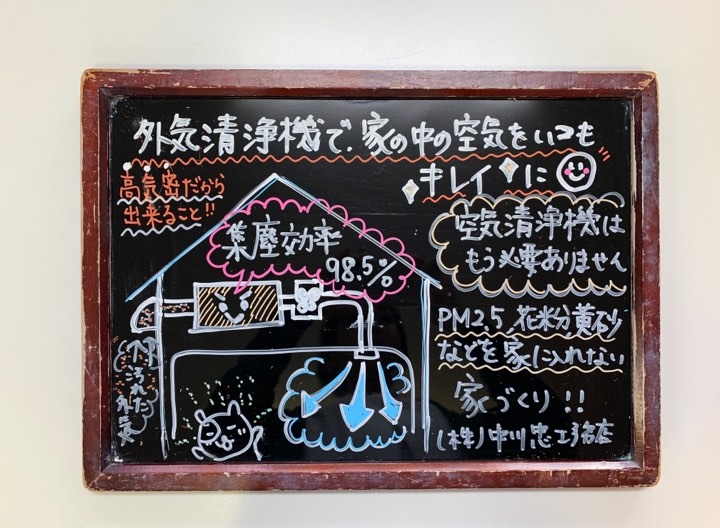 外気清浄機で、家の中の空気をいつも
キレイに
高気密だから
出来ること!!
集塵効率
98.5%
空気清浄機は
もう必要ありません
PM2.5、花粉、黄砂
などを家に入れない
家づくり!!
(株)中川忠工務店
汚れた外気